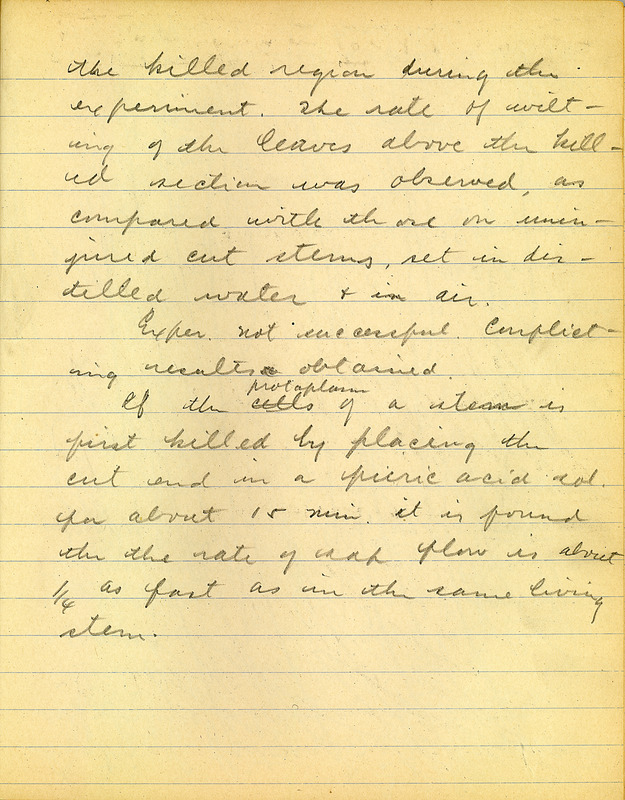 the killed region during the
experiment. The rate of wilt-
ing of the leaves above the kill-
ed section was observed, as
compared with those on unin-
jured cut stems, set in dis-
tilled water & in air.
Exper. not successful. Conflict-
ing results obtained.
protoplasm
If the cells of a stem is
first killed by placing the
cut end in a picric acid sol.
for about 15 min. it is found
the the rate of sap flow is about
1/4 as fast as in the same living
stem.